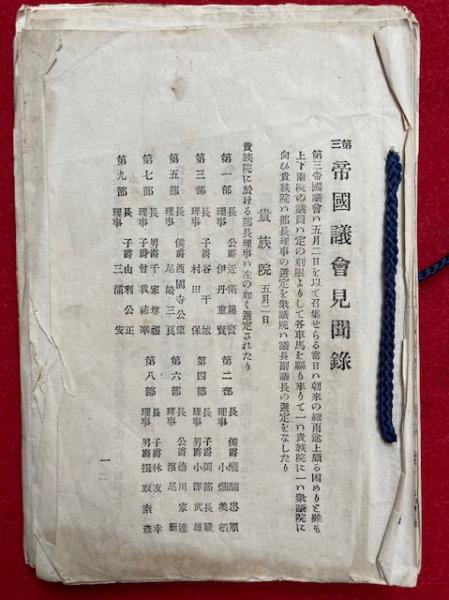 第三帝國議會見聞錄
第三帝國議會ハ五月二日を以て召集せらる當日ハ朝來の細雨途上頗る困めりと雖も
上下兩院の議員ハ定の刻限よりして各車馬を驅り來りて一ハ貴族院に一ハ衆議院に
向ひ貴族院ハ部長理事の選定を衆議院ハ議長副議長の選定をなしたり
貴族院 五月二日
貴族院に於ける部長理事ハ左の如く選定されたり
第一部 長 公爵 近衛篤麿
理事 伊丹重賢
第二部 長 侯爵 醍醐忠順
理事 小畑美稻
第三部 長 子爵 谷干城
理事 村田保
第四部 長 子爵 岡部長職
理事 男爵 小澤武雄
第五部 長 侯爵 西園寺公望
理事 尾崎三良
第六部 長 公爵 德川家達
理事 濱尾新
第七部 長 男爵 千家尊福
理事 子爵 曾我祐準
第八部 長 子爵 林友幸
理事 男爵 楫取素彦
第九部 長 子爵 由利公正
理事 三浦安
一